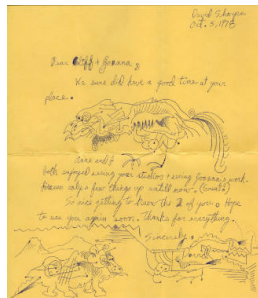 Oct. 5, 1978
Dear Cliff & Joanna,
We sure did have a good time at your
place.
Anne and I
both enjoyed seeing your studios & seeing Joanna's work.
only a few things up until now
So nice getting to know the 2 of you. Hope
to see you again soon. Thanks for everything.
Sincerely,
David